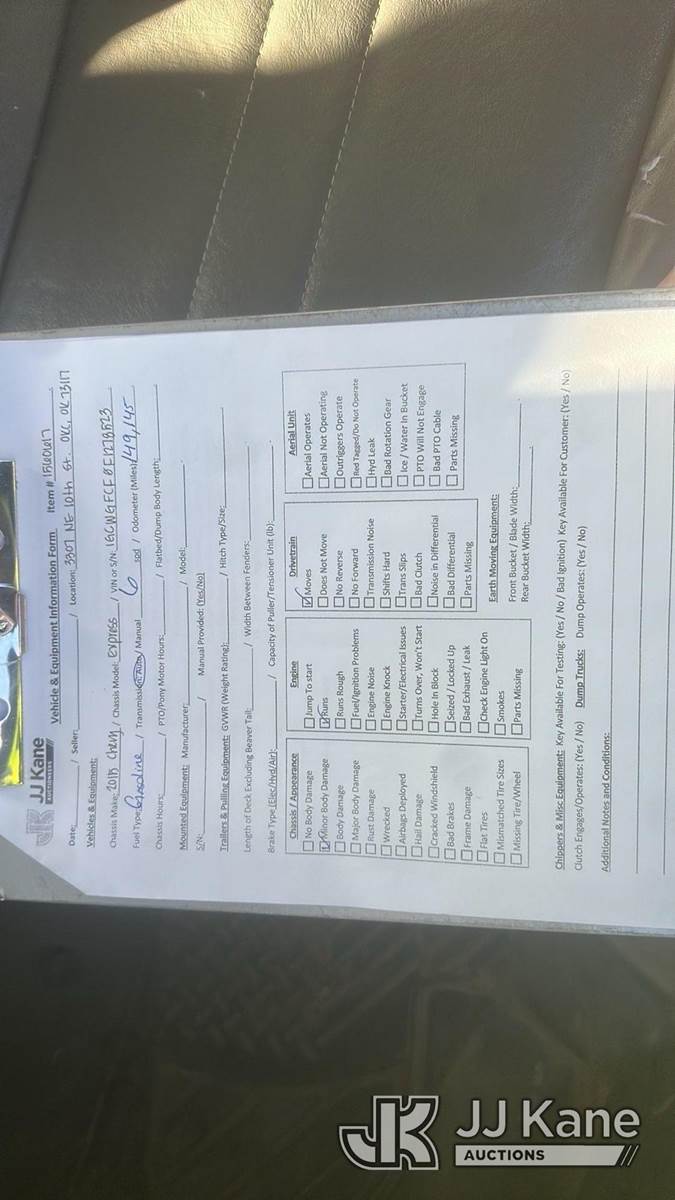 JJ Kane
AUCTIONEERS
Vehicle & Equipment Information Form Item #
Date: / Seller: / Location: 3307 NE 10th St. OKC, OK 73117
Vehicles & Equipment:
Chassis Make: Chevy / Chassis Model: Express / VIN or S/N:
Fuel Type: Gasoline / Transmission: Auto / Manual 6 spd / Odometer (Miles): 149,145
Chassis Hours: / PTO/Pony Motor Hours: / Flatbed/Dump Body Length:
Mounted Equipment: Manufacturer: / Model:
S/N: / Manual Provided: (Yes/No)
Trailers & Pulling Equipment: GVWR (Weight Rating): / Hitch Type/Size:
Length of Deck Excluding Beaver Tail: / Width Between Fenders:
Brake Type (Elec/Hyd/Air): / Capacity of Puller/Tensioner Unit (lb):
Chassis / Appearance
No Body Damage
Minor Body Damage
Body Damage
Major Body Damage
Rust Damage
Wrecked
Airbags Deployed
Hail Damage
Cracked Windshield
Bad Brakes
Frame Damage
Flat Tires
Mismatched Tire Sizes
Missing Tire/Wheel
Engine
Jump To start
Runs
Runs Rough
Fuel/Ignition Problems
Engine Noise
Engine Knock
Starter/Electrical Issues
Turns Over, Won't Start
Hole In Block
Seized / Locked Up
Bad Exhaust / Leak
Check Engine Light On
Smokes
Parts Missing
Drivetrain
Moves
Does Not Move
No Reverse
No Forward
Transmission Noise
Shifts Hard
Trans Slips
Bad Clutch
Noise in Differential
Bad Differential
Parts Missing
Aerial Unit
Aerial Operates
Aerial Not Operating
Outriggers Operate
Red Tagged/Do Not Operate
Hyd Leak
Bad Rotation Gear
Ice / Water In Bucket
PTO Will Not Engage
Bad PTO Cable
Parts Missing
Earth Moving Equipment:
Front Bucket / Blade Width:
Rear Bucket Width:
Chippers & Misc Equipment: Key Available For Testing: (Yes / No / Bad Ignition) Key Available For Customer: (Yes / No)
Clutch Engages/Operates: (Yes / No) Dump Trucks: Dump Operates: (Yes / No)
Additional Notes and Conditions:
JJ Kane
AUCTIONS